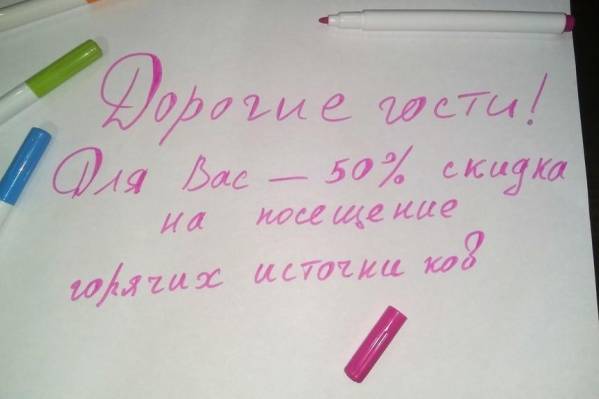 Дорогие гости!
Для Вас – 50% скидка
на посещение
горячих источников